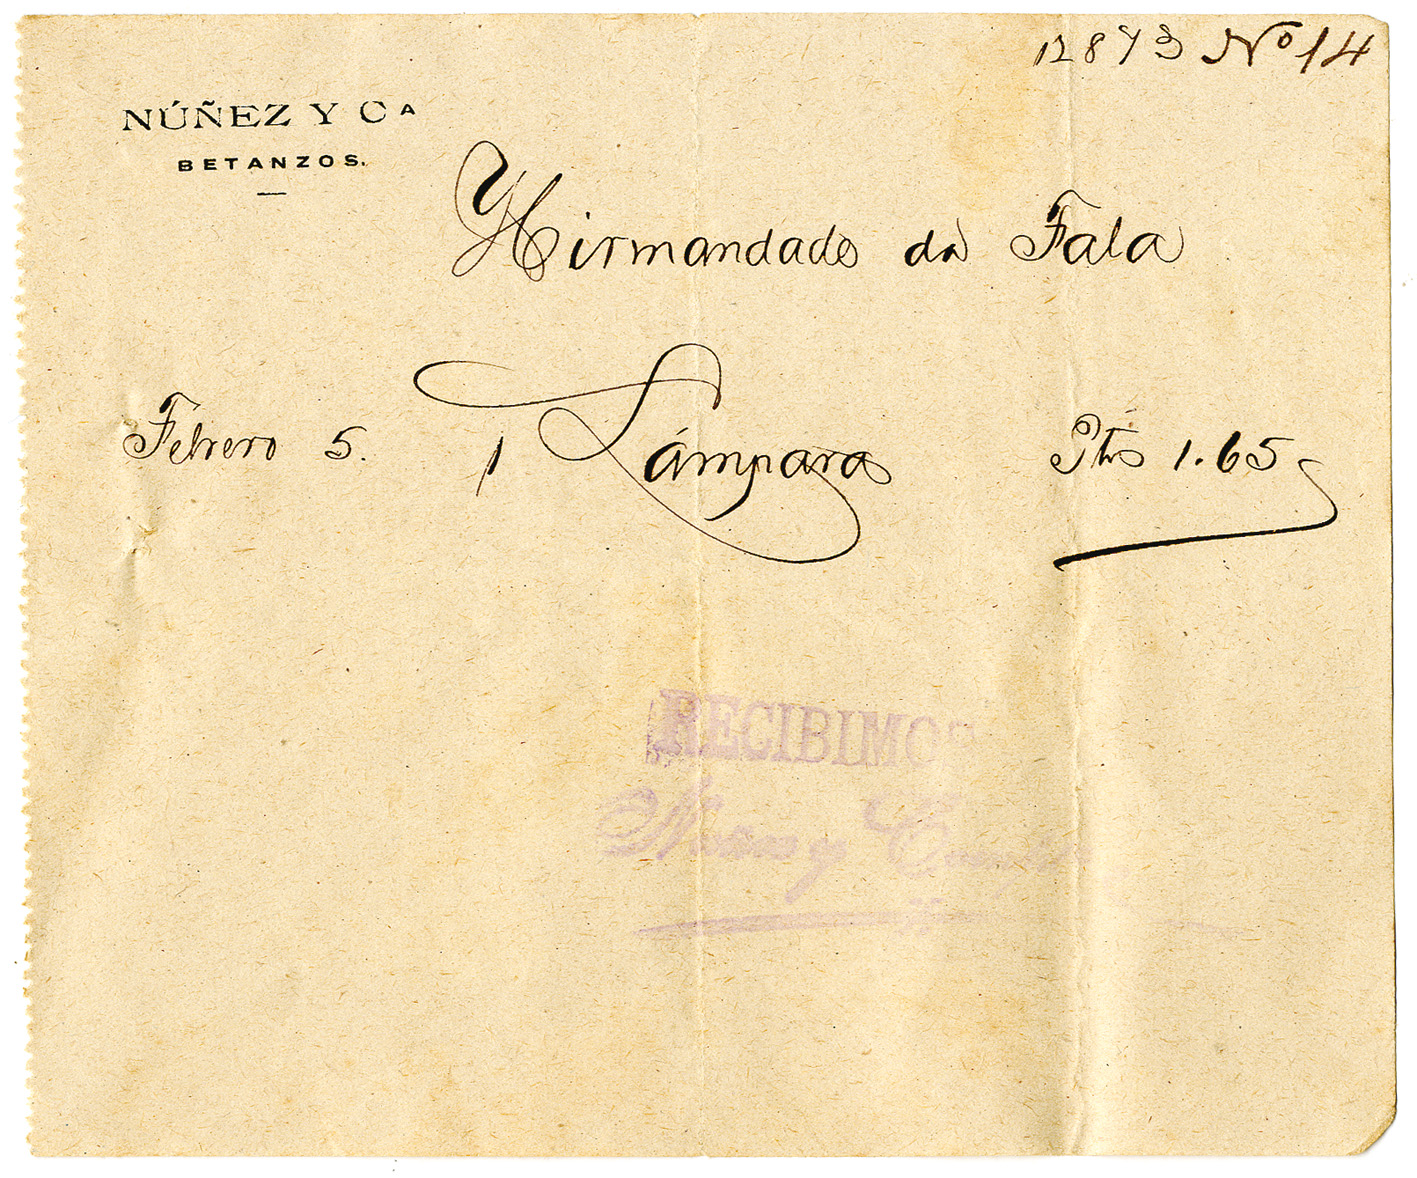 12873 Nº 14
NÚÑEZ Y Cª
BETANZOS.
Hirmandade da Fala
Febrero 5. 1 Lámpara Pts 1.65
RECIBIMOS
Núñez y Comp